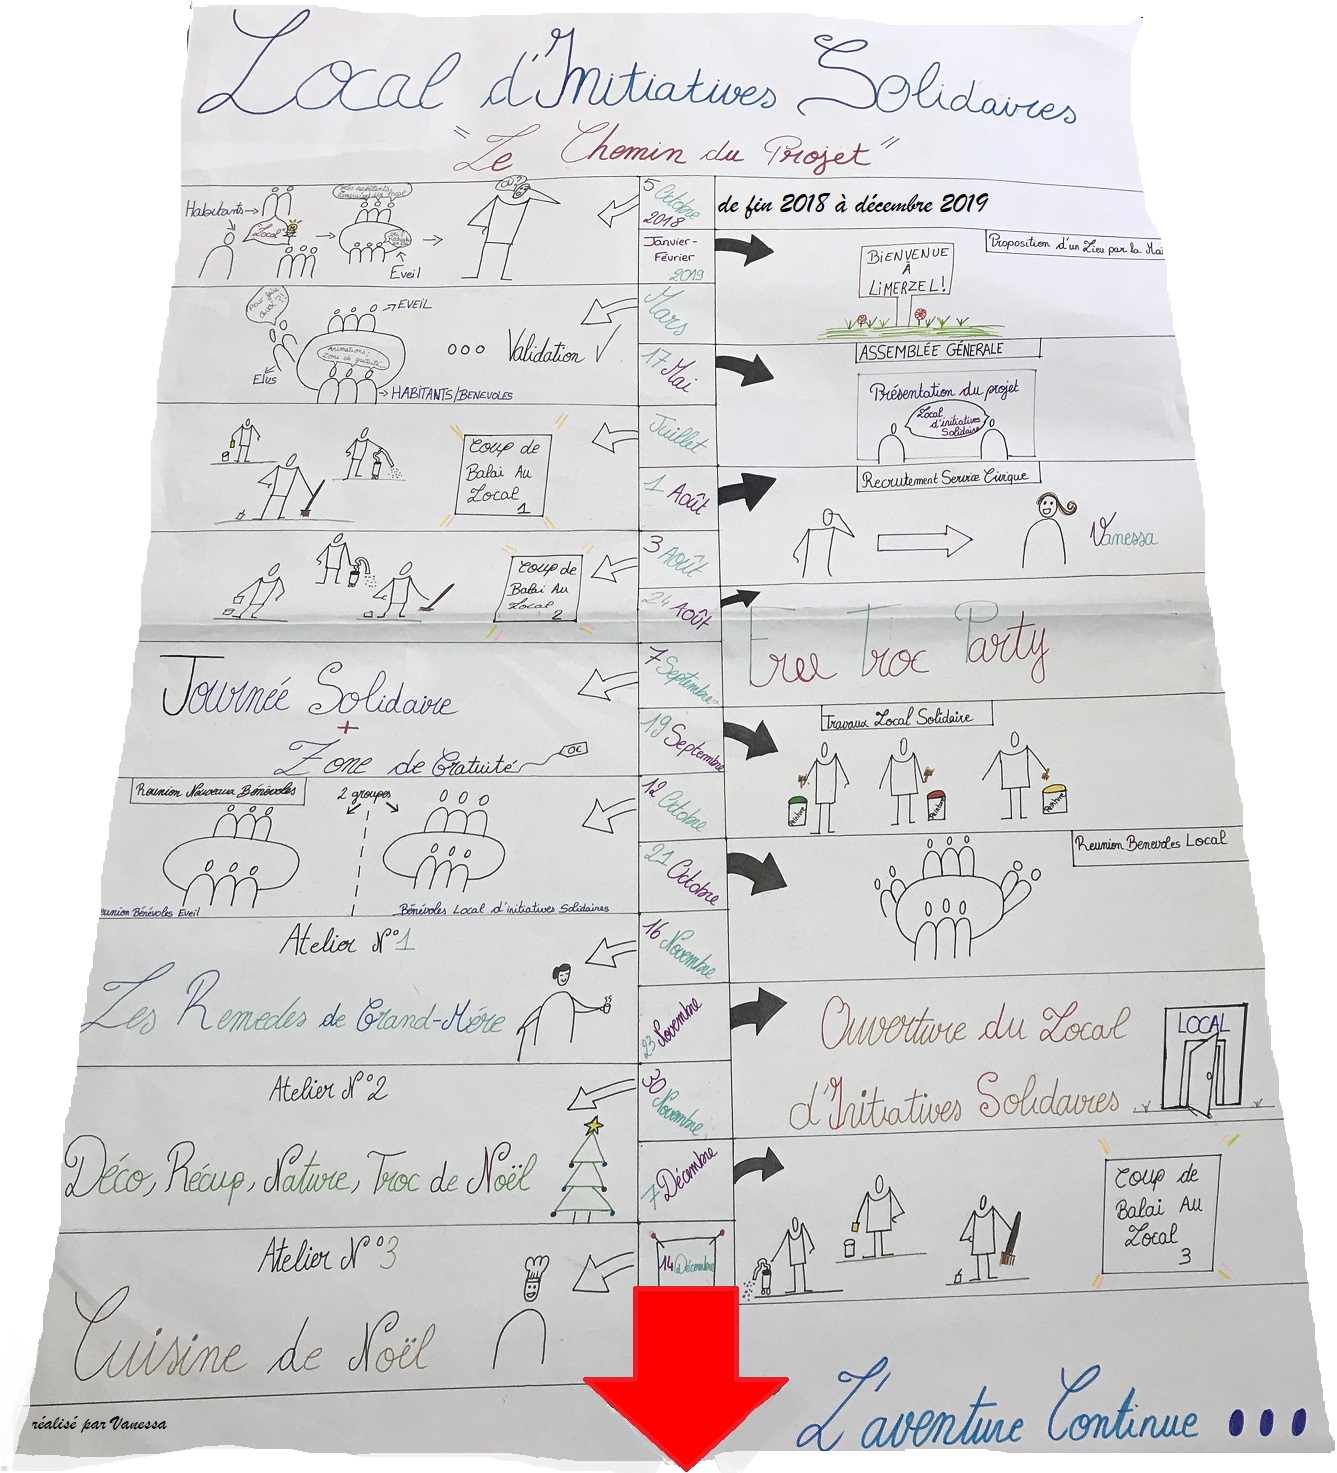 Local d'Initiatives Solidaires
"Le Chemin du Projet"
de fin 2018 à décembre 2019
5 Octobre 2018
Habitants
Local
Eveil
où?
Janvier-Février 2019
Proposition d'un Lieu par la Mai
BIENVENUE
À
LIMERZEL!
Mars
EVEIL
Elus
Animations.
Zone de gratuité.
HABITANTS/BENEVOLES
Validation ✓
17 Mai
ASSEMBLÉE GÉNERALE
Présentation du projet
Local
d'initiatives
Solidaire
Juillet
Coup de
Balai Au
Local
1
1 Août
Recrutement Service Civique
Vanessa
3 Août
Coup de
Balai Au
Local
2
24 Août
Free Troc Party
7 Septembre
Journée Solidaire
+
Zone de Gratuité
19 Septembre
Travaux Local Solidaire
Peinture
Peinture
Peinture
12 Octobre
Reunion Nouveaux Bénévoles
2 groupes
eunion Bénévoles Eveil
Bénévoles Local d'initiatives Solidaires
21 Octobre
Reunion Benevoles Local
16 Novembre
Atelier N°1
Les Remedes de Grand-Mére
23 Novembre
Ouverture du Local
d'Initiatives Solidaires
LOCAL
30 Novembre
Atelier N°2
Déco, Récup, Nature, Troc de Noël
7 Décembre
Coup de
Balai Au
Local
3
14 Décembre
Atelier N°3
Cuisine de Noël
réalisé par Vanessa
L'aventure Continue ...